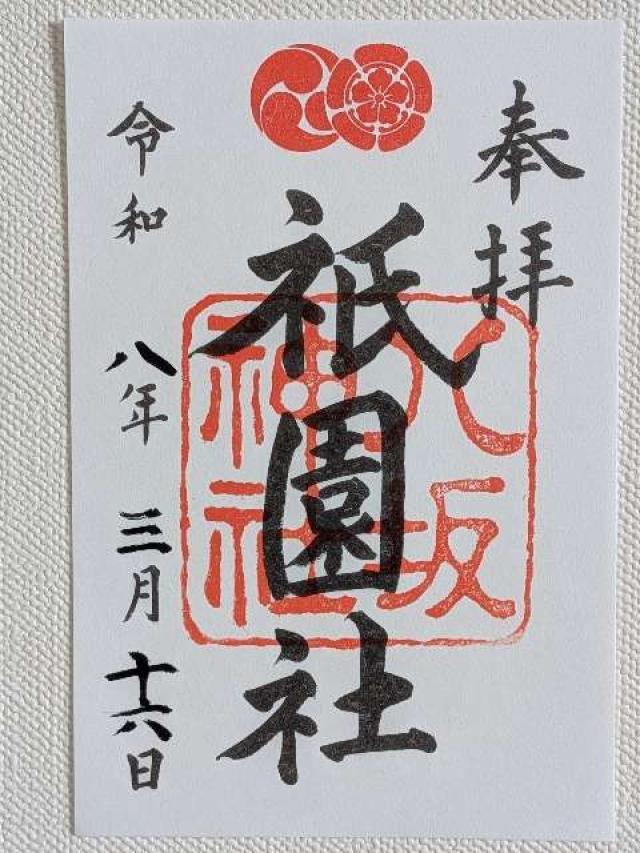 奉拝
祇園社
八坂神社
令和八年三月十六日